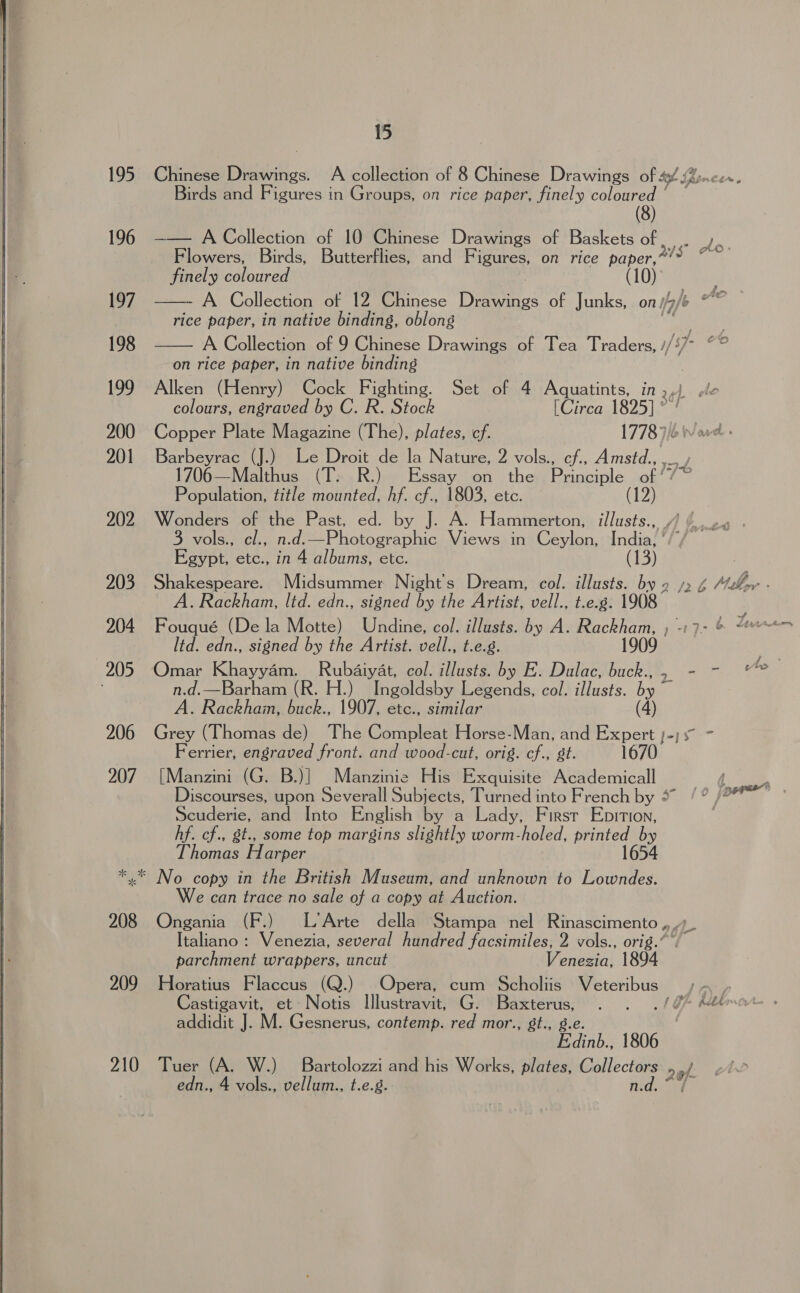 15
195 Chinese Drawings. A collection of 8 Chinese Drawings of
Birds and Figures in Groups, on rice paper, finely coloured
(8)
196 —— A Collection of 10 Chinese Drawings of Baskets of
Flowers, Birds, Butterflies, and Figures, on rice paper,
finely coloured (10)
197 —— A Collection of 12 Chinese Drawings of Junks, on
rice paper, in native binding, oblong
198 —— A Collection of 9 Chinese Drawings of Tea Traders,
on rice paper, in native binding
199 Alken (Henry) Cock Fighting. Set of 4 Aquatints, in
colours, engraved by C. R. Stock [Circa 1825]
200 Copper Plate Magazine (The), plates, cf. 1778 Ward.
201 Barbeyrac (J.) Le Droit de la Nature, 2 vols., cf., Amstd.,
1706—Malthus (T. R.) Essay on the Principle of
Population, title mounted, hf. cf., 1803, etc. (12)
202 Wonders of the Past, ed. by J. A. Hammerton, illusts.,
3 vols., cl., n.d.—Photographic Views in Ceylon, India,
Egypt, etc., in 4 albums, etc. (13)
203 Shakespeare. Midsummer Night's Dream, col. illusts. by
A. Rackham, ltd. edn., signed by the Artist, vell., t.e.g. 1908
204 Fouqué (De la Motte) Undine, col. illusts. by A. Rackham,
ltd. edn., signed by the Artist. vell., t.e.g. 1909
205 Omar Khayyám. Rubáiyát, col. illusts. by E. Dulac, buck.,
n.d.—Barham (R. H.) Ingoldsby Legends, col. illusts. by
A. Rackham, buck., 1907, etc., similar (4)
206 Grey (Thomas de) The Compleat Horse-Man, and Expert
Ferrier, engraved front. and wood-cut, orig. cf., gt. 1670
207 [Manzini (G. B.)] Manzinie His Exquisite Academicall
Discourses, upon Severall Subjects, Turned into French by
Scuderie, and Into English by a Lady, First Edition,
hf. cf., gt., some top margins slightly worm-holed, printed by
Thomas Harper 1654
*** No copy in the British Museum, and unknown to Lowndes.
We can trace no sale of a copy at Auction.
208 Ongania (F.) L'Arte della Stampa nel Rinascimento
Italiano : Venezia, several hundred facsimiles, 2 vols., orig.
parchment wrappers, uncut Venezia, 1894
209 Horatius Flaccus (Q.) Opera, cum Scholiis Veteribus
Castigavit, et Notis Illustravit, G. Baxterus, . . .
addidit J. M. Gesnerus, contemp. red mor., gt., g.e.
Edinb., 1806
210 Tuer (A. W.) Bartolozzi and his Works, plates, Collectors
edn., 4 vols., vellum., t.e.g. n.d.